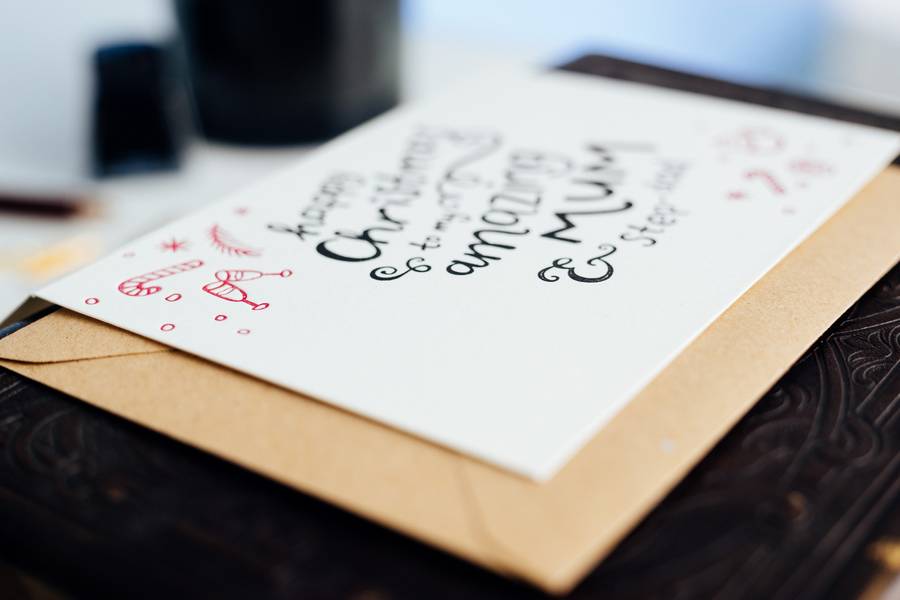 happy
Christmas
to my
amazing
MUM
& step-dad